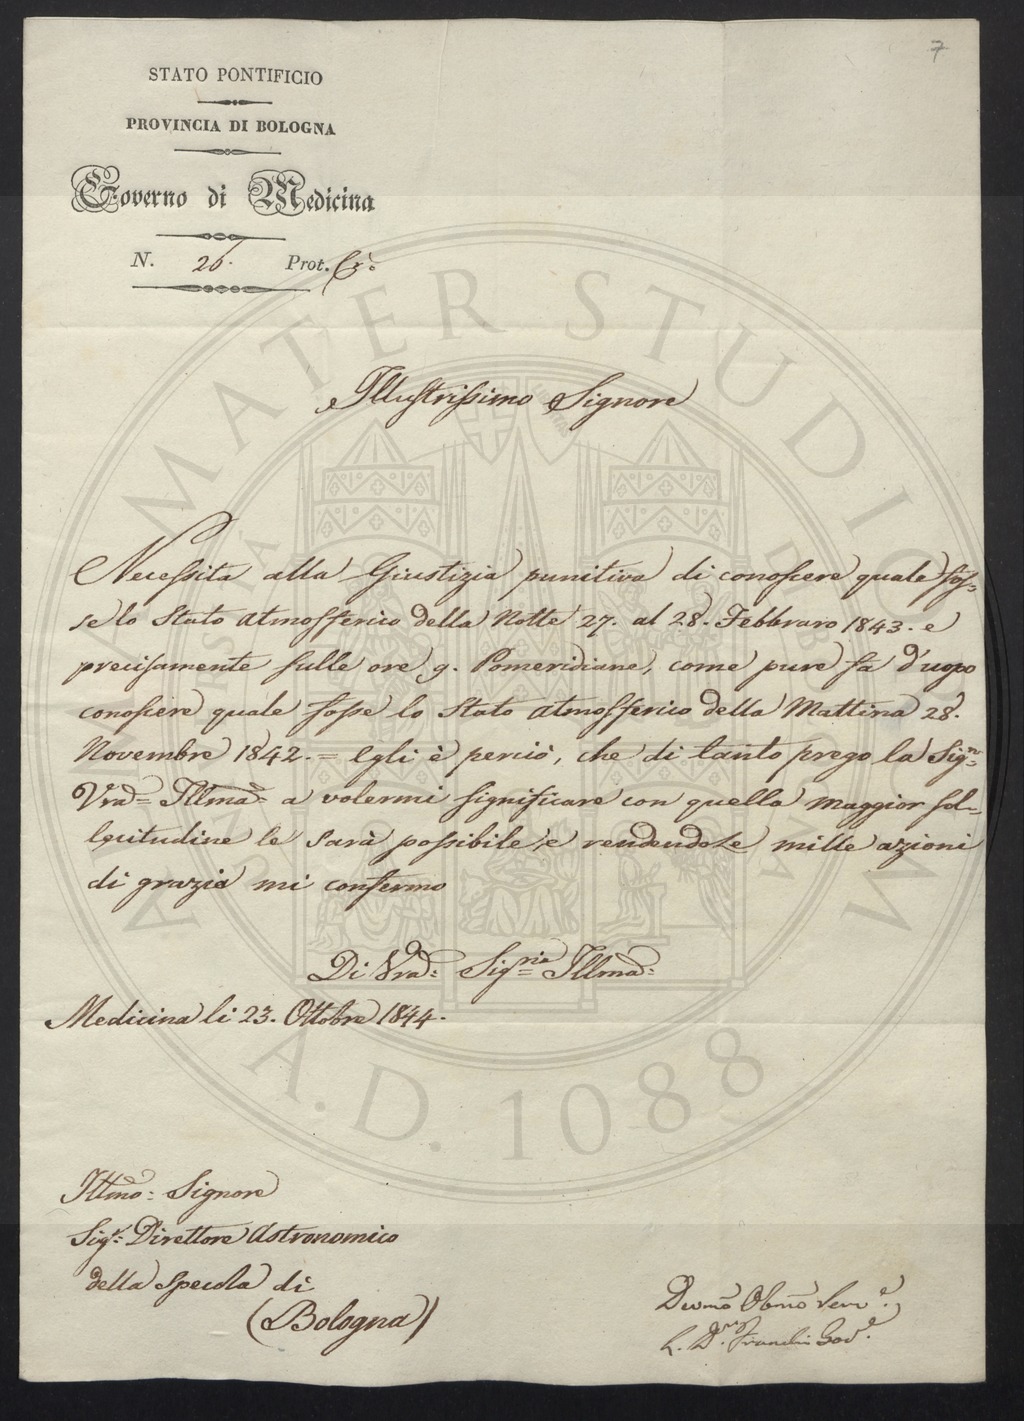 7
STATO PONTIFICIO
PROVINCIA DI BOLOGNA
Governo di Medicina
N. 26. Prot.
Illustrissimo Signore
Necessita alla Giustizia punitiva di conoscere quale fos=
se lo Stato atmosferico della Notte 27. al 28. Febbraro 1843. e
precisamente sulle ore 9. Pomeridiane, come pure fa d'uopo
conoscere quale fosse lo Stato atmosferico della Mattina 28.
Novembre 1842. = Egli è perciò, che di tanto prego la Sig.ria
Vra= Illma= a volermi significare con quella maggior sol=
lecitudine le sarà possibile, e rendendole mille azioni
di grazia mi confermo
Di Vra= Sig.ria Illma=
Medicina li 23. Ottobre 1844.
Illmo= Signore
Sigr= Direttore Astronomico
della Specola di
(Bologna)
Devmo Obmo Serve.
Gove.
ALMA MATER STUDIORUM
A.D. 1088